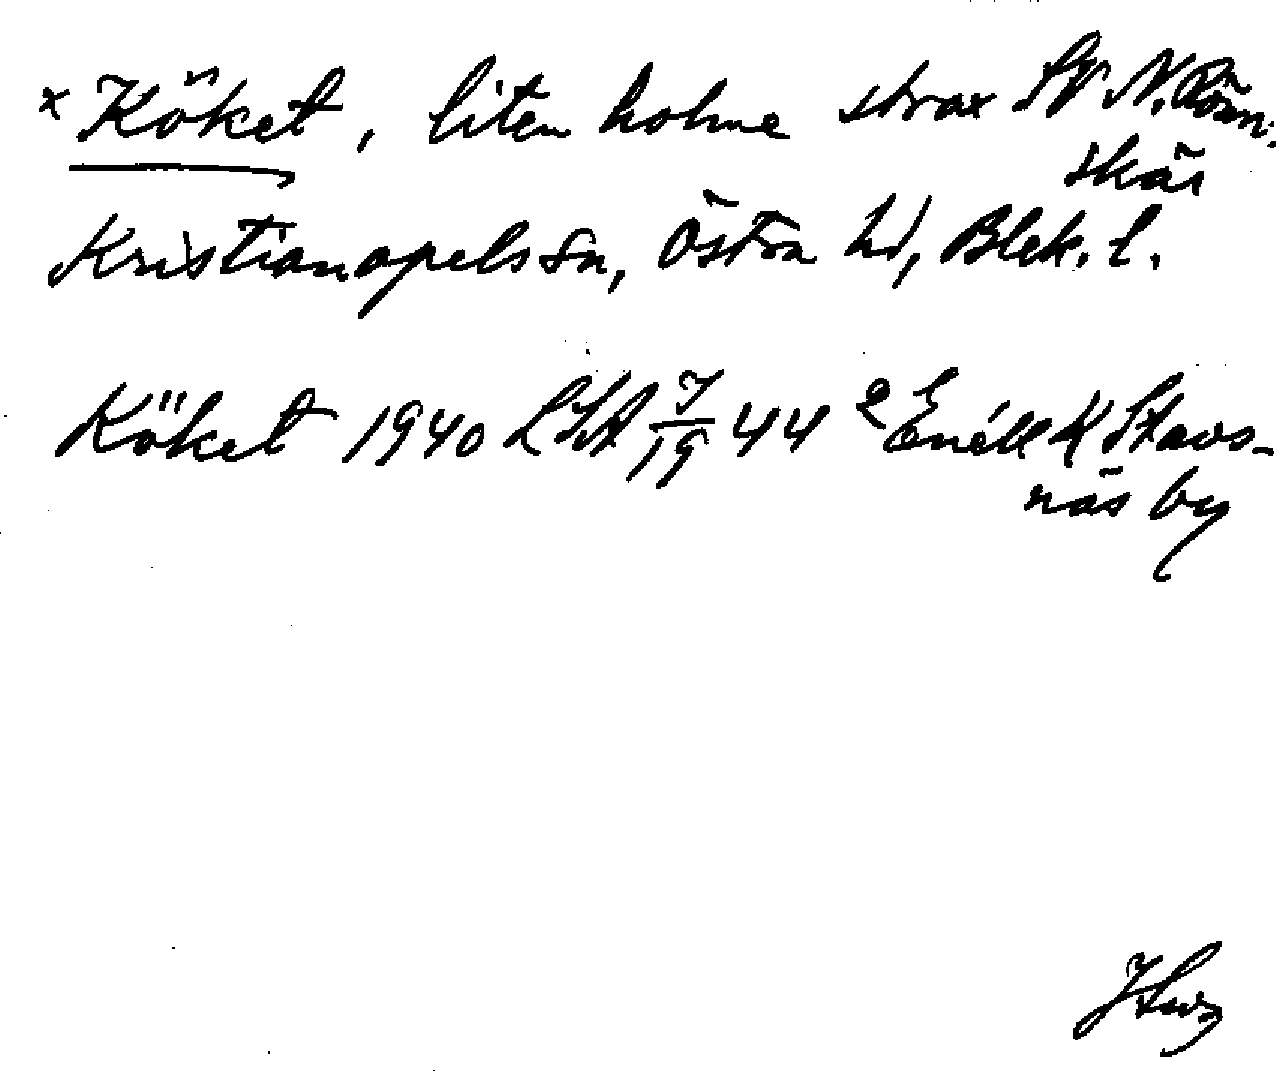 x Köket, liten holme strax SV N. Rönn-
skär
Kristianopels sn, Östra hd, Blek. l.
Köket 1940 LSA 7/19 44 e Enéll K Stavs-
näs by